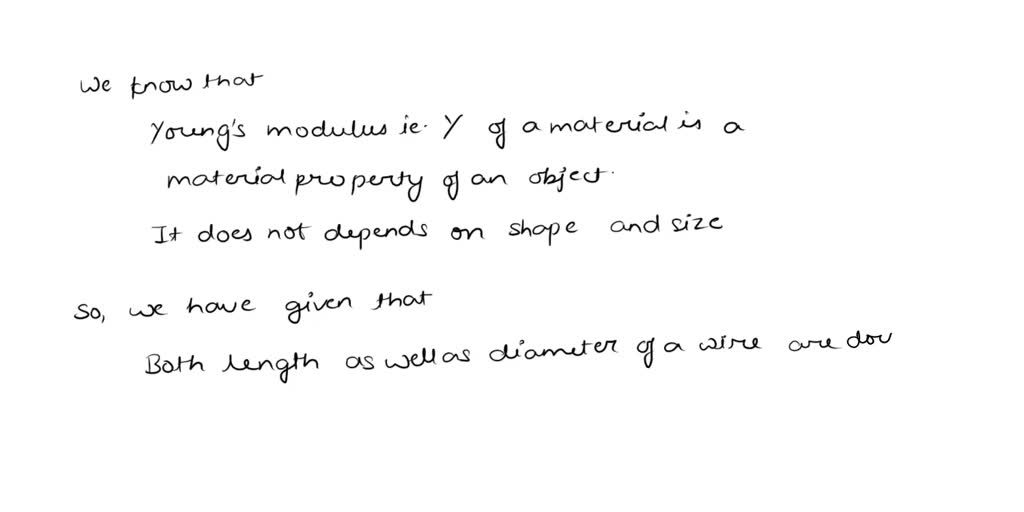 We know that
Young's modulus ie. Y of a material is a
material property of an object.
It does not depends on shape and size
So, we have given that
Both length as well as diameter of a wire are dou